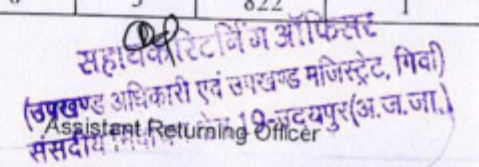 822
सहायक रिटर्निंग ऑफिसर
(उपखण्ड अधिकारी एवं उपखण्ड मजिस्ट्रेट, गिर्वा)
संसदीय 19-उदयपुर(अ.ज.जा.)
Assistant Returning Officer